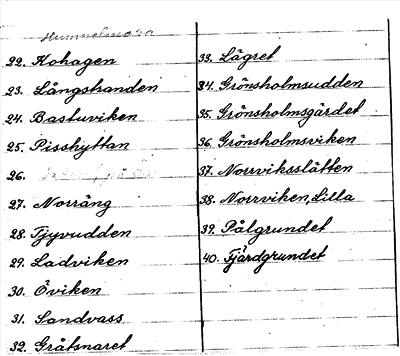 22. Kohagen
23. Långstranden
24. Bastuviken
25. Pisshyttan
26.
27. Norräng
28. Tjyvudden
29. Ladviken
30. Öviken
31. Sandvass
32. Gråtsnaret
33. Lägret
34. Grönsholmsudden
35. Grönsholmsgärdet
36. Grönsholmsviken
37. Norrviksslätten
38. Norrviken, Lilla
39. Pålgrundet
40. Fjärdgrundet